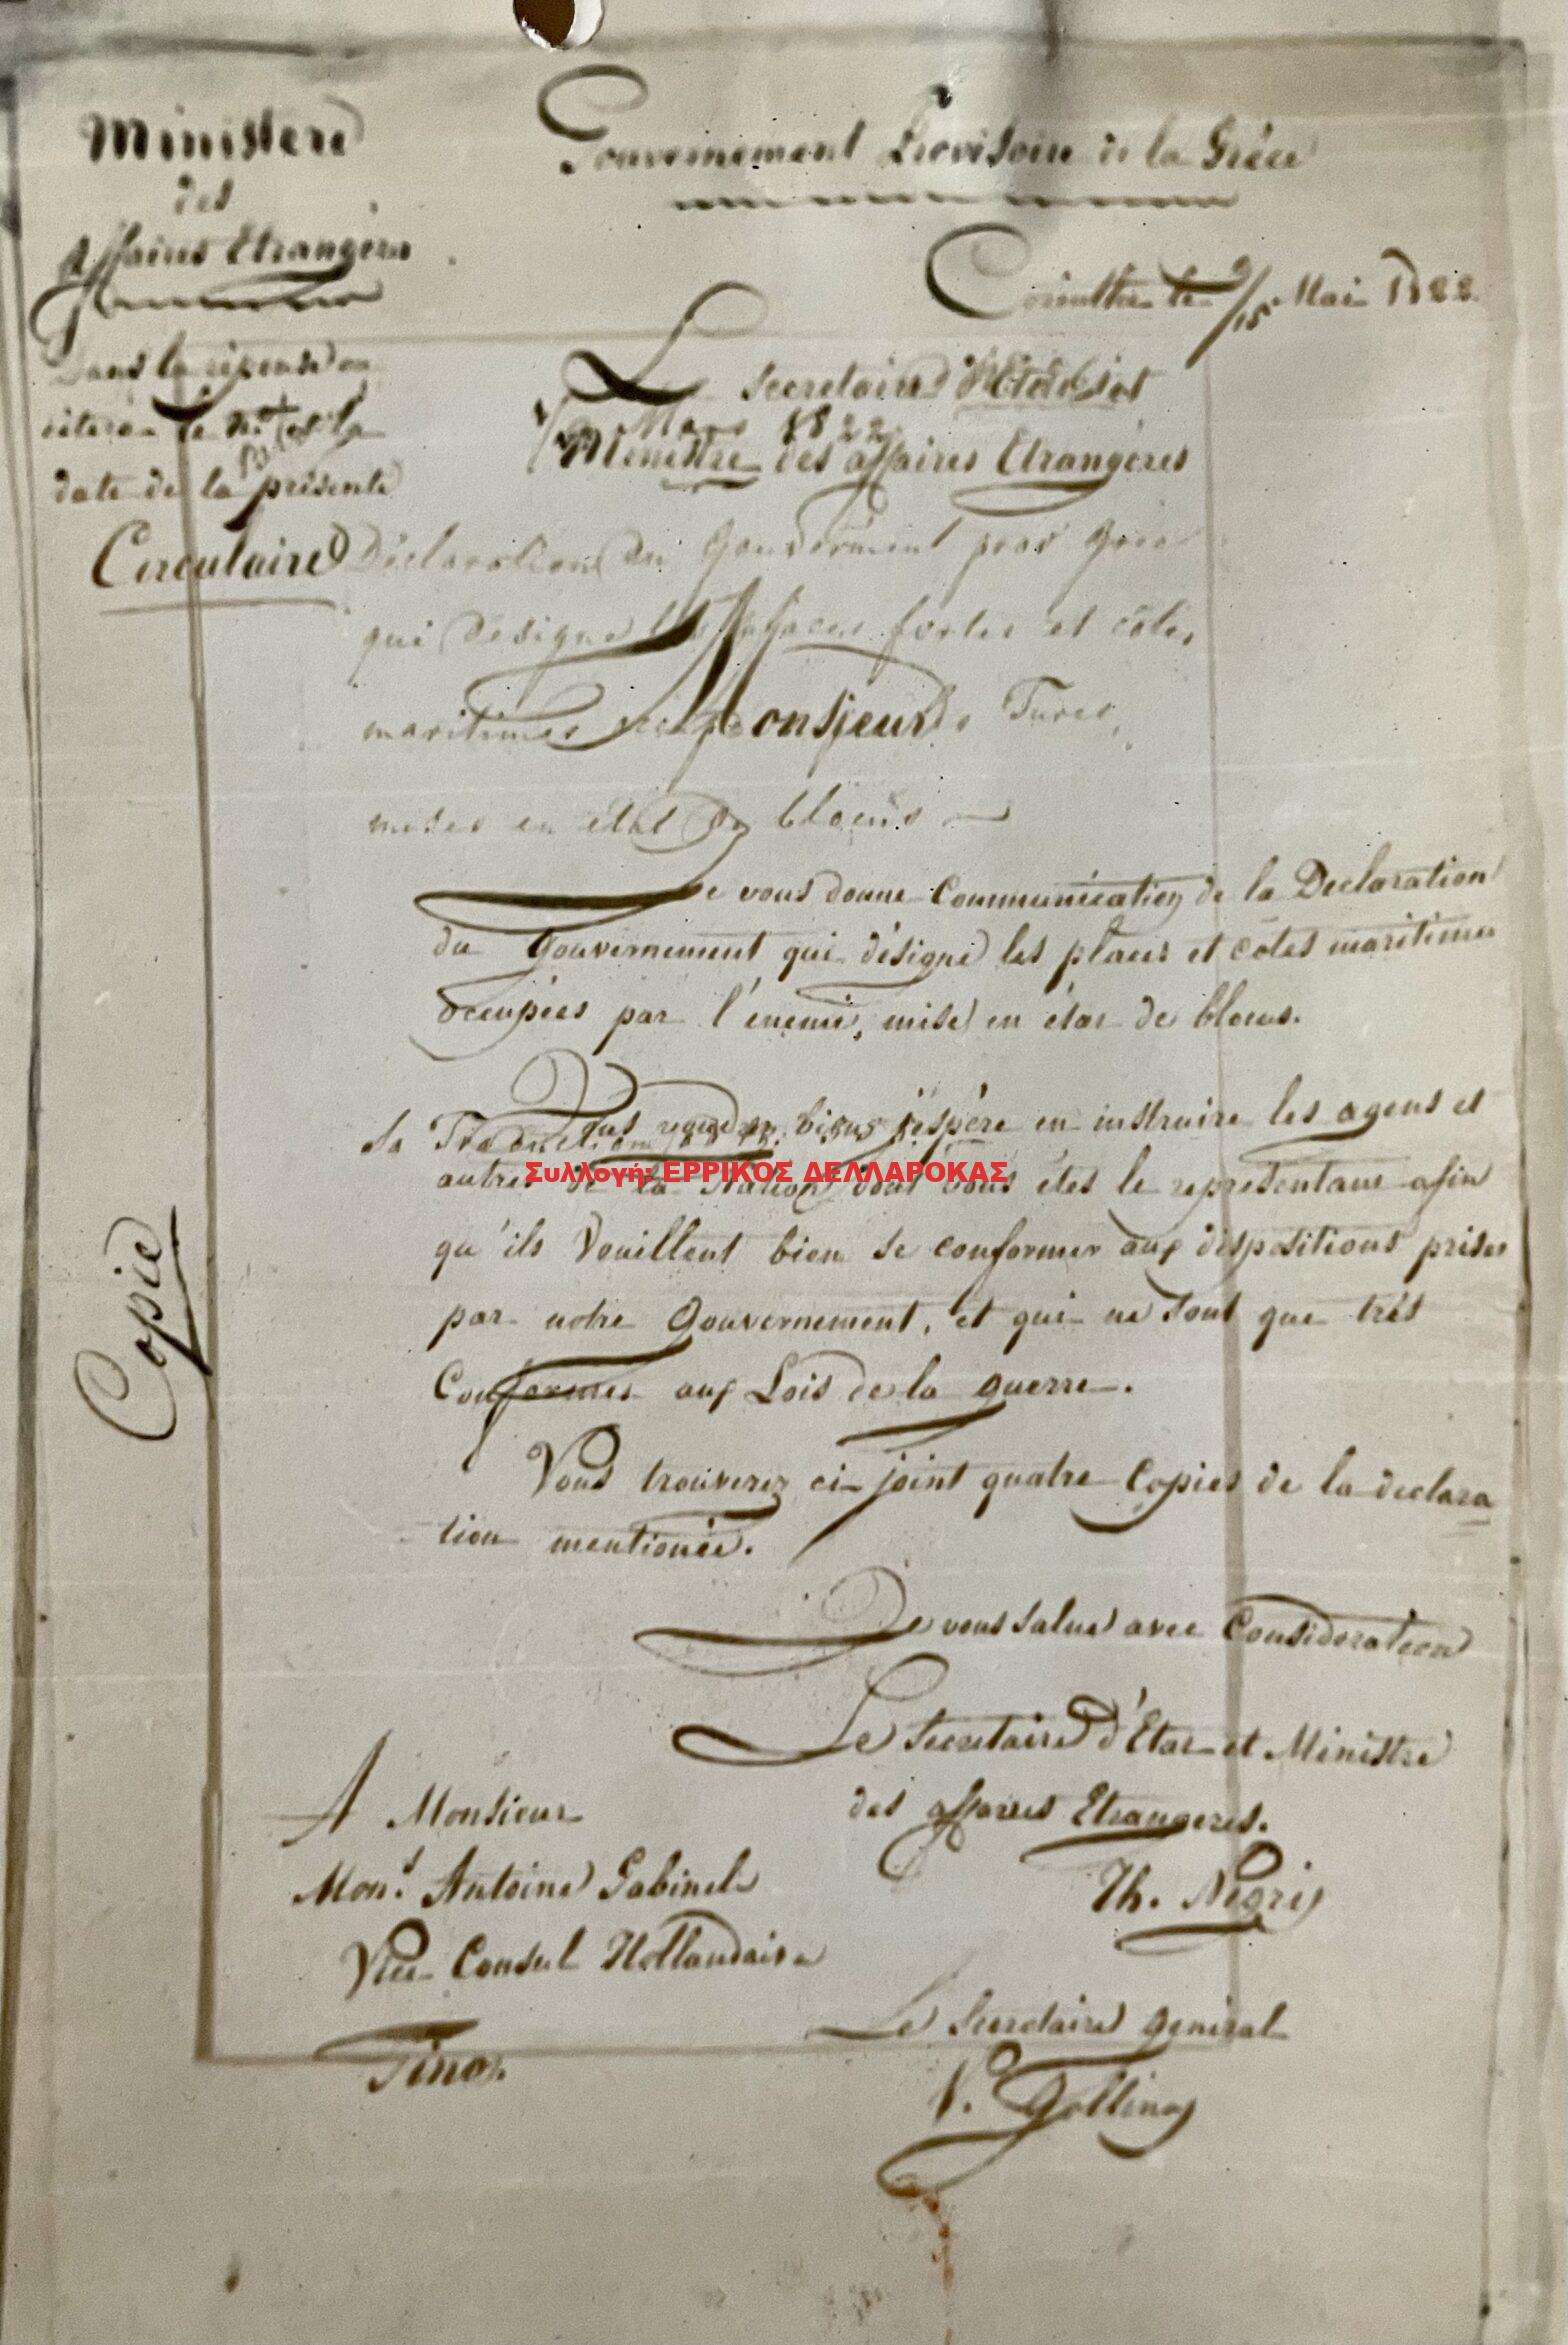 Ministere
des
Affaires Etrangères
Gouvernement Provisoire de la Grèce
Corinthe le 3/15 Mai 1822
Dans la réponse on
citera le N.º et la
date de la présente
Le Secretaire d'Etat et
Mars 1822
Ministre des affaires Etrangères
Circulaire
Déclaration du Gouverment prov Grec
qui désigne les places fortes et côtes
maritimes Turcs,
Monsieur
mises en état de blocus
Je vous donne Communication de la Declaration
du Gouvernement qui désigne les places et côtes maritimes
occupées par l'énemie, mise en état de blocus.
Sa Traduction
Vous voudrez bien j'éspère en instruire les agens et
autres de la Nation dont vous étes le representant afin
qu'ils Veuillent bien se conformer aux dispositions prises
par notre Gouvernement, et qui ne sont que trés
Conformes aux Lois de la guerre.
Vous trouverez ci-joint quatre Copies de la declara
tion mentionée.
Copie
Je vous salue avec Consideration
Le Secretaire d'Etat et Ministre
des affaires Etrangeres.
Th. Negri
A Monsieur
Mon.r Antoine Gabinel
Vice Consul Hollandais
Tino.
Le Secretaire general
V. Gollino
Συλλογή: ΕΡΡΙΚΟΣ ΔΕΛΛΑΡΟΚΑΣ